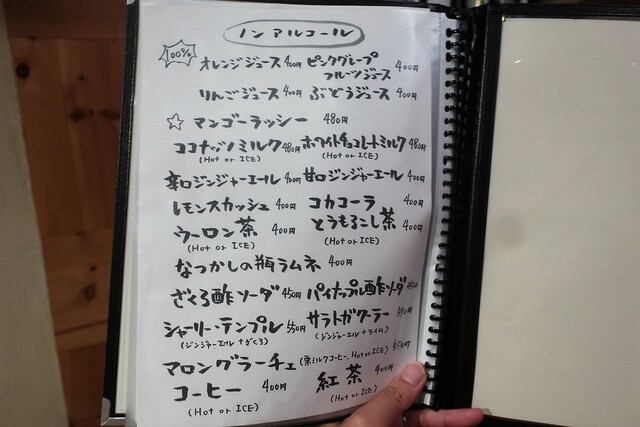 ノンアルコール
100% オレンジジュース 400円 ピンクグレープフルーツジュース 400円
りんごジュース 400円 ぶどうジュース 400円
☆マンゴーラッシー 480円
ココナッツミルク 480円 ホワイトチョコレートミルク 480円
(Hot or ICE) (Hot or ICE)
辛口ジンジャーエール 400円 甘口ジンジャーエール 400円
レモンスカッシュ 400円 コカコーラ 400円
ウーロン茶 400円 とうもろこし茶 400円
(Hot or ICE) (Hot or ICE)
なつかしの瓶ラムネ 400円
ざくろ酢ソーダ 450円 パイナップル酢ソーダ 450円
シャーリーテンプル 550円 サラトガクーラー 550円
(ジンジャーエル+ざくろ) (ジンジャーエル+ライム)
マロングラーチェ (栗ミルクコーヒー、Hot or ICE) 550円
コーヒー 400円 紅茶 400円
(Hot or ICE) (Hot or ICE)